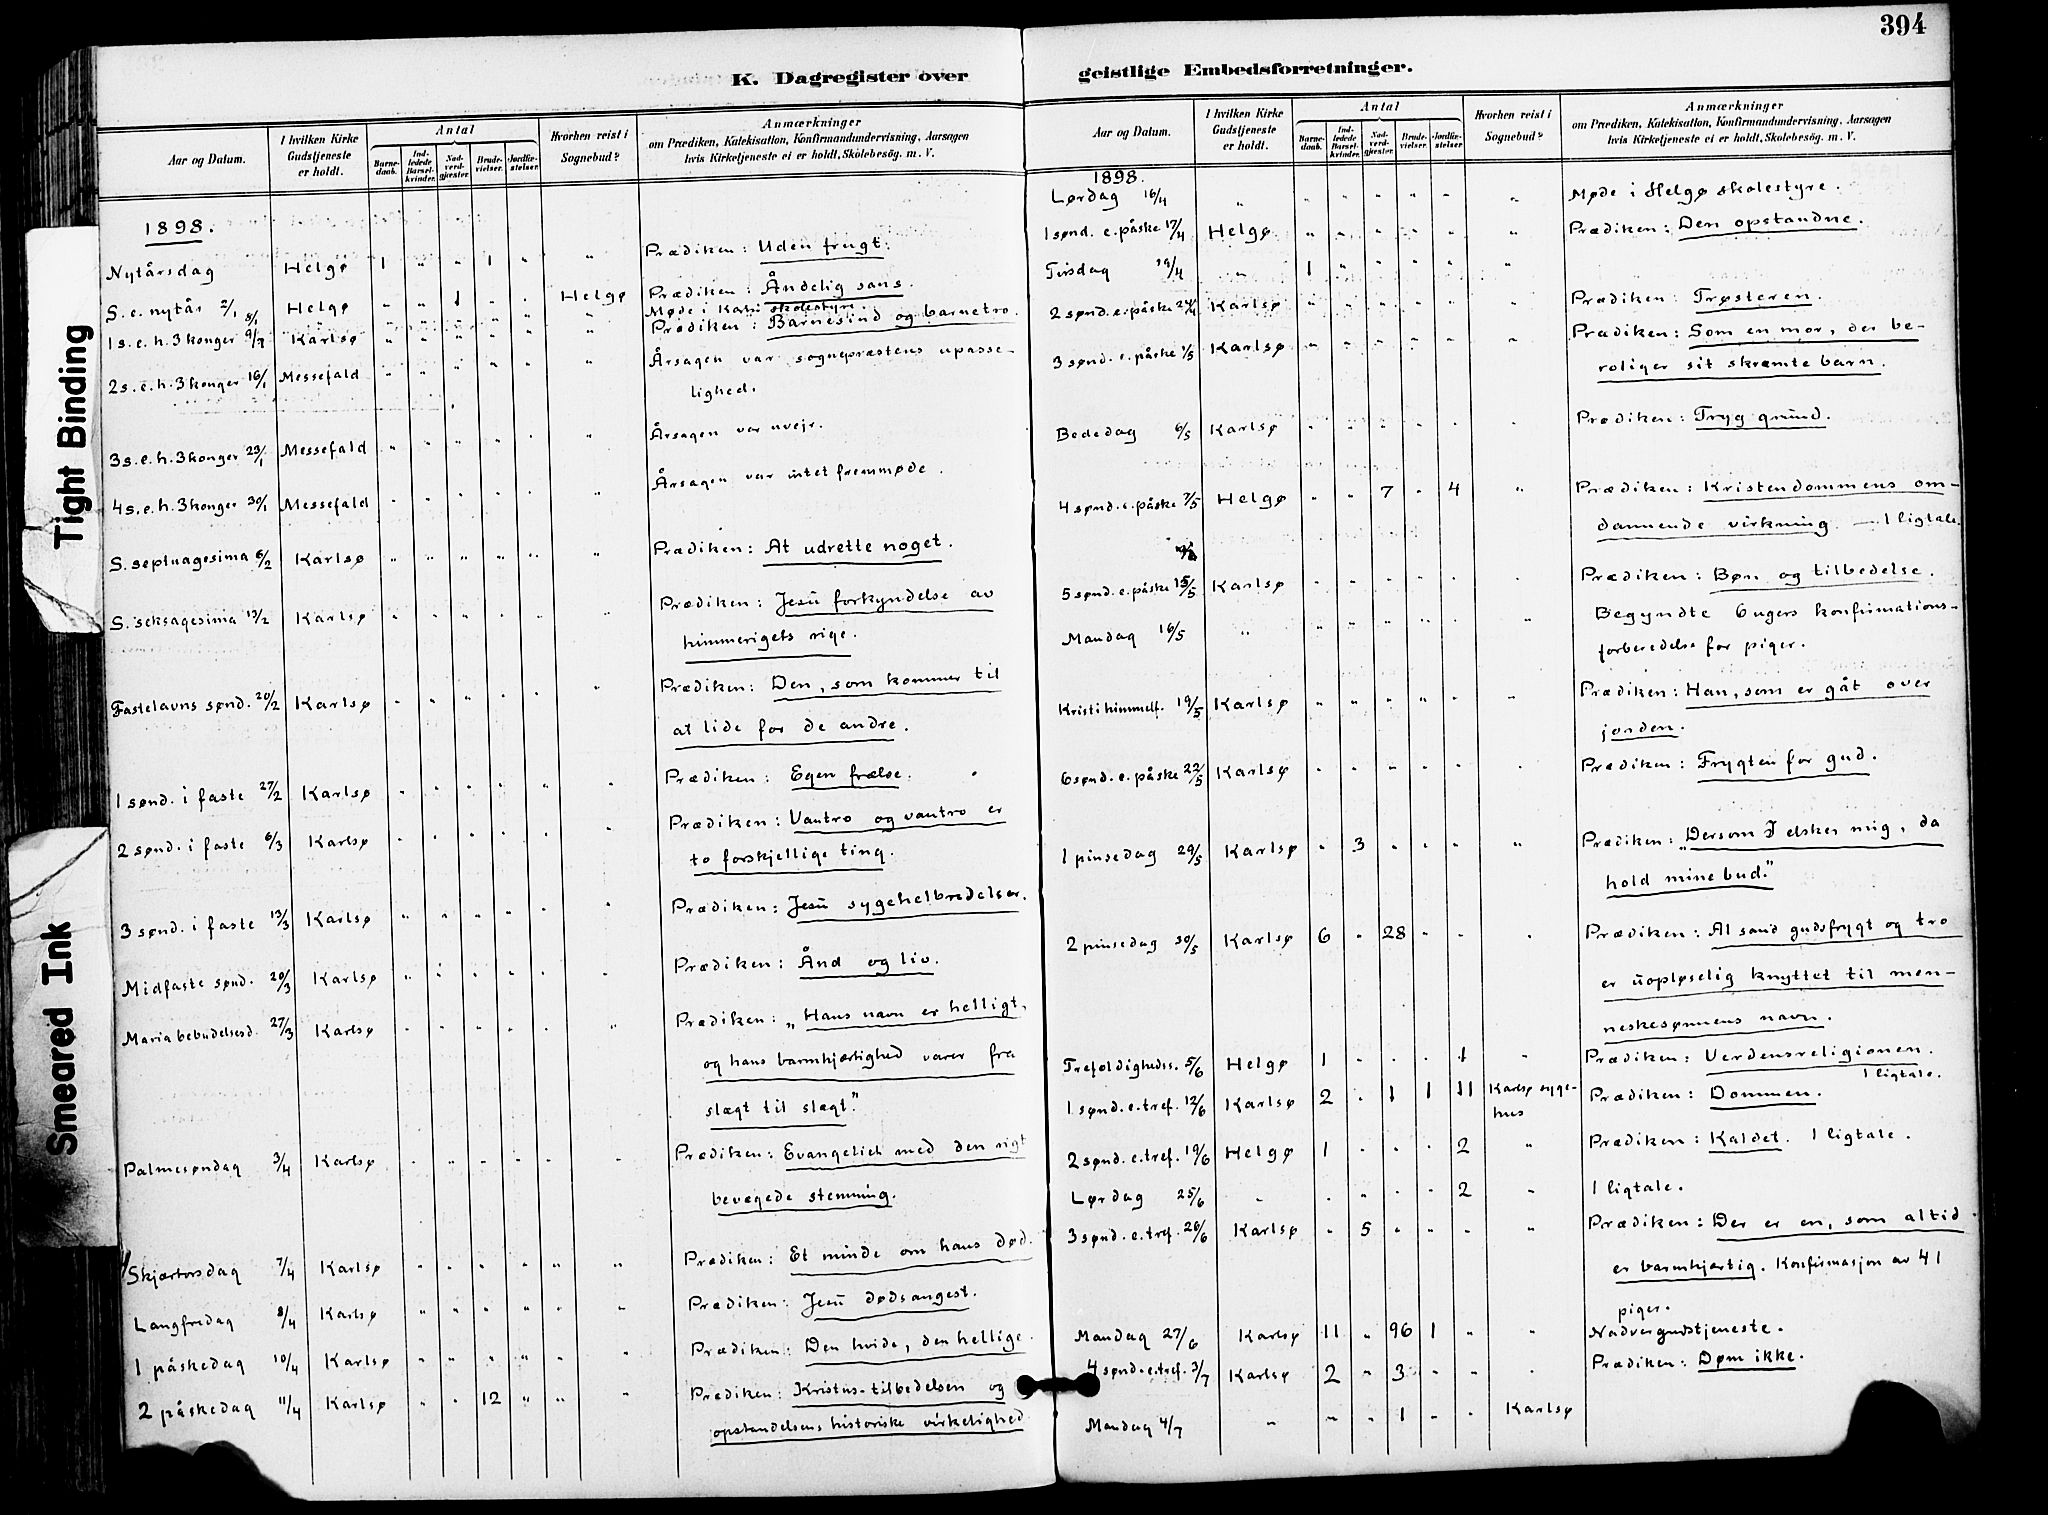 394
K. Dagregister over geistlige Embedsforretninger.
Tight Binding
Smeared Ink
Aar og Datum.
I hvilken Kirke Gudstjeneste er holdt.
Antal
Barne-daab.
Ind-ledede Barsel-kvinder.
Nad-verd-gjæster.
Brude-vielser.
Jordfæ-stelser.
Hvorhen reist i Sognebud?
Anmærkninger
om Prædiken, Katekisation, Konfirmandundervisning, Aarsagen
hvis Kirketjeneste ei er holdt, Skolebesög. m. V.
1898.
Nytårsdag Helgø 1 " " 1 " " Prædiken: Uden frugt.
S. e. nytår 2/1 Helgø " " 1 " " Helgø Prædiken: Åndelig sans.
8/1 " " " " " " Møde i Karlsø skolestyre.
1 s. e. h. 3 konger 9/1 Karlsø " " " " " " Prædiken: Barnesind og barnetro.
2 s. e. h. 3 konger 16/1 Messefald " " " " " " Årsagen var sognepræstens upasse-
lighed.
3 s. e. h. 3 konger 23/1 Messefald " " " " " " Årsagen var uvejr.
4 s. e. h. 3 konger 30/1 Messefald " " " " " " Årsagen var intet fremmøde.
S. septuagesima 6/2 Karlsø " " " " " " Prædiken: At udrette noget.
S. seksagesima 13/2 Karlsø " " " " " " Prædiken: Jesu forkyndelse av
himmerigets rige.
Fastelavns sønd. 20/2 Karlsø " " " " " " Prædiken: Den, som kommer til
at lide for de andre.
1 sønd. i faste 27/2 Karlsø " " " " " " Prædiken: Egen frælse.
2 sønd. i faste 6/3 Karlsø " " " " " " Prædiken: Vantro og vantro er
to forskjellige ting.
3 sønd. i faste 13/3 Karlsø " " " " " " Prædiken: Jesu sygehelbredelser.
Midfaste sønd. 20/3 Karlsø " " " " " " Prædiken: Ånd og liv.
Maria bebudelsesd. 27/3 Karlsø " " " " " " Prædiken: „Hans navn er helligt,
og hans barmhjærtighed varer fra
slægt til slægt."
Palmesøndag 3/4 Karlsø " " " " " " Prædiken: Evangeliet med den rigt
bevægede stemning.
Skjærtorsdag 7/4 Karlsø " " " " " " Prædiken: Et minde om hans død.
Langfredag 8/4 Karlsø " " " " " " Prædiken: Jesu dødsangest.
1 påskedag 10/4 Karlsø " " " " " " Prædiken: Den hvide, den hellige.
2 påskedag 11/4 Karlsø " " 12 " " " Prædiken: Kristus-tilbedelsen og
opstandelsens historiske virkelighed
Aar og Datum.
I hvilken Kirke Gudstjeneste er holdt.
Antal
Barne-daab.
Ind-ledede Barsel-kvinder.
Nad-verd-gjæster.
Brude-vielser.
Jordfæ-stelser.
Hvorhen reist i Sognebud?
Anmærkninger
om Prædiken, Katekisation, Konfirmandundervisning, Aarsagen
hvis Kirketjeneste ei er holdt, Skolebesög. m. V.
1898.
Lørdag 16/4 " " " " " " " Møde i Helgø skolestyre.
1 sønd. e. påske 17/4 Helgø " " " " " " Prædiken: Den opstandne.
Tirsdag 19/4 " 1 " " " " "
2 sønd. e. påske 24/4 Karlsø " " " " " " Prædiken: Trøsteren.
3 sønd. e. påske 1/5 Karlsø " " " " " " Prædiken: Som en mor, der be-
roliger sit skræmte barn.
Bededag 6/5 Karlsø " " " " " " Prædiken: Tryg grund.
4 sønd. e. påske 7/5 Helgø " " 7 " 4 " Prædiken: Kristendommens om-
dannende virkning. — 1 ligtale.
5 sønd. e. påske 15/5 Karlsø " " " " " " Prædiken: Bøn og tilbedelse.
Mandag 16/5 " " " " " " " Begyndte 6 ugers konfirmations-
forberedelse for piger.
Kristi himmelf. 19/5 Karlsø " " " " " " Prædiken: Han, som er gåt over
jorden.
6 sønd. e. påske 22/5 Karlsø " " " " " " Prædiken: Frygten for gud.
1 pinsedag 29/5 Karlsø " 3 " " " " Prædiken: „Dersom I elsker mig, da
hold mine bud."
2 pinsedag 30/5 Karlsø 6 " 28 " " " Prædiken: Al sand gudsfrygt og tro
er uopløselig knyttet til men-
neskesønnens navn.
Trefoldighedss. 5/6 Helgø 1 " " " 1 " Prædiken: Verdensreligionen.
1 ligtale.
1 sønd. e. tref. 12/6 Karlsø 2 " 1 1 11 Karlsø syge-hus Prædiken: Dommen.
2 sønd. e. tref. 19/6 Helgø 1 " " " 2 " Prædiken: Kaldet. 1 ligtale.
Lørdag 25/6 " " " " " 2 " 1 ligtale.
3 sønd. e. tref. 26/6 Karlsø " 5 " " " " Prædiken: Der er en, som altid
er barmhjærtig. Konfirmasjon av 41
piger.
Mandag 27/6 Karlsø 11 " 96 1 " " Nadvergudstjeneste.
4 sønd. e. tref. 3/7 Karlsø 2 " 3 " " " Prædiken: Døm ikke.
Mandag 4/7 " " " 1 " " Karlsø